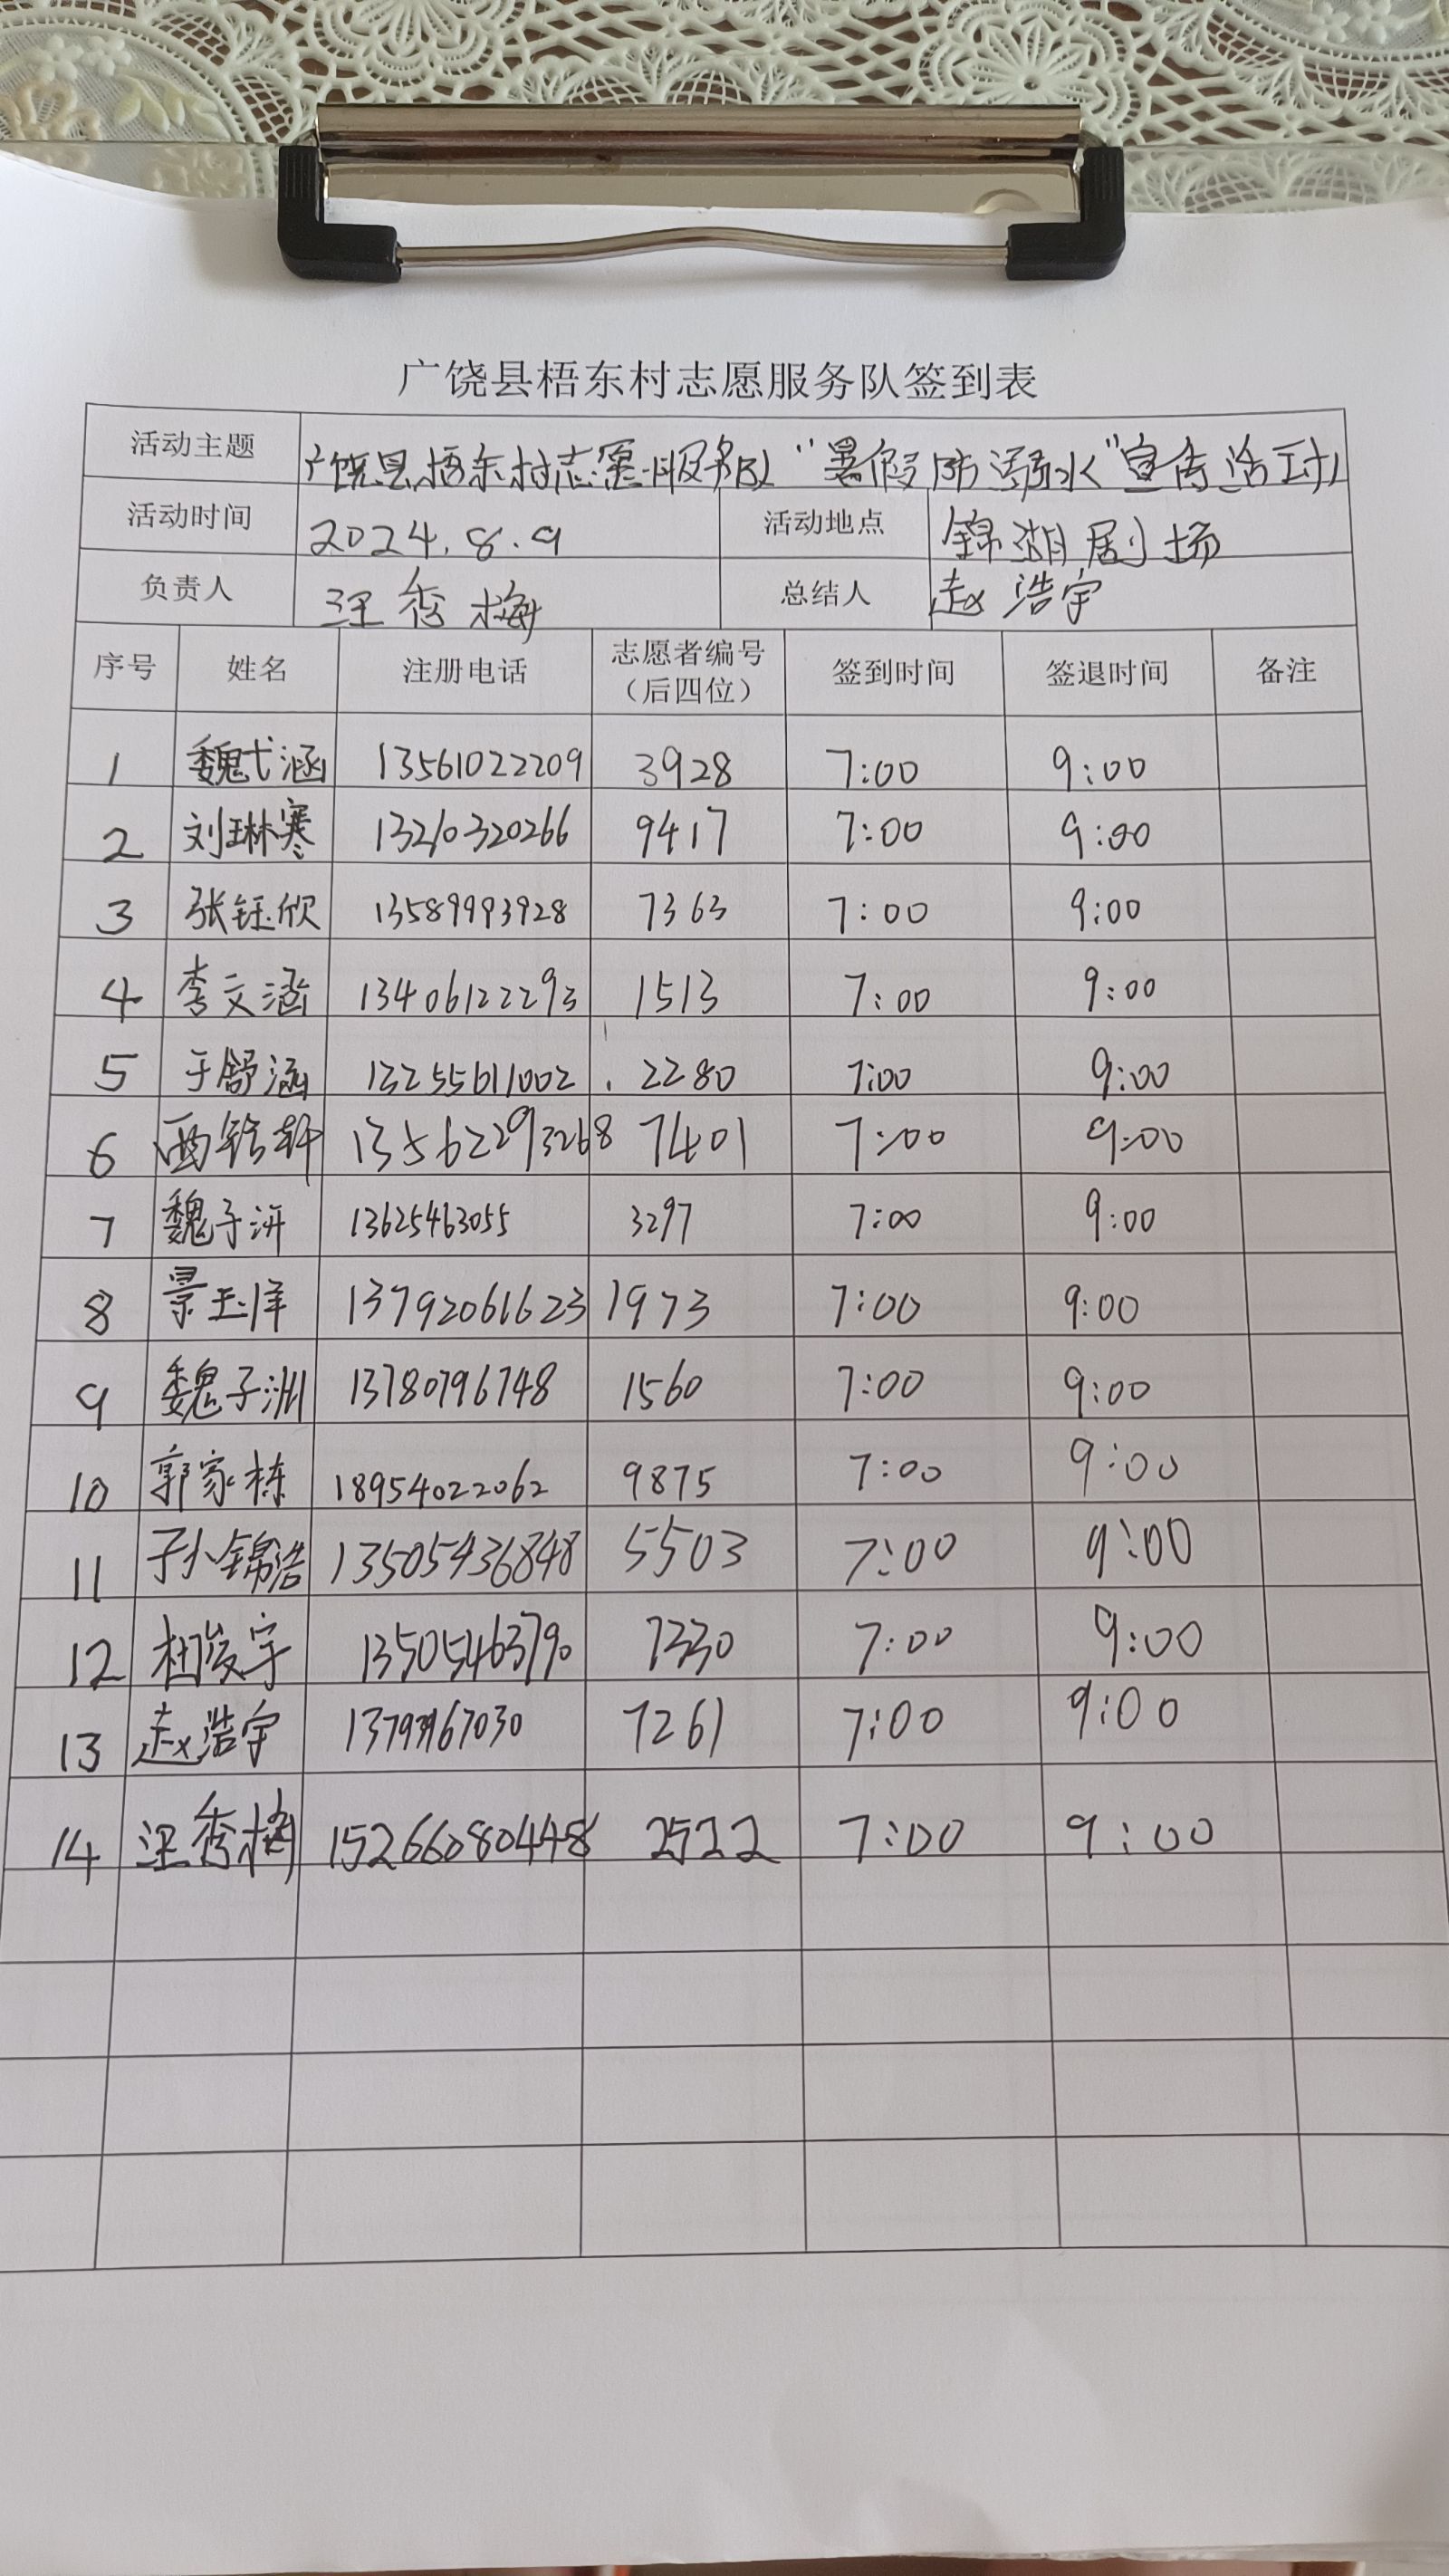 广饶县梧东村志愿服务队签到表
活动主题 广饶县梧东村志愿服务队“暑假防溺水”宣传活动
活动时间 2024.8.9 活动地点 锦湖剧场
负责人 汪秀梅 总结人 赵浩宇
序号 姓名 注册电话 志愿者编号（后四位） 签到时间 签退时间 备注
1 魏弋涵 13561022209 3928 7:00 9:00
2 刘琳寒 13210320266 9417 7:00 9:00
3 张钰欣 13589993928 7363 7:00 9:00
4 李文涵 13406122293 1513 7:00 9:00
5 于舒涵 13255611002 2280 7:00 9:00
6 13562293268 7401 7:00 9:00
7 魏子涵 13625463055 3297 7:00 9:00
8 景玉洋 13792061623 1973 7:00 9:00
9 魏子洲 13780796748 1560 7:00 9:00
10 郭家栋 18954022062 9875 7:00 9:00
11 孙锦浩 13505436848 5503 7:00 9:00
12 杜俊宇 13505463790 7330 7:00 9:00
13 赵浩宇 7261 7:00 9:00
14 汪秀梅 15266080448 2522 7:00 9:00